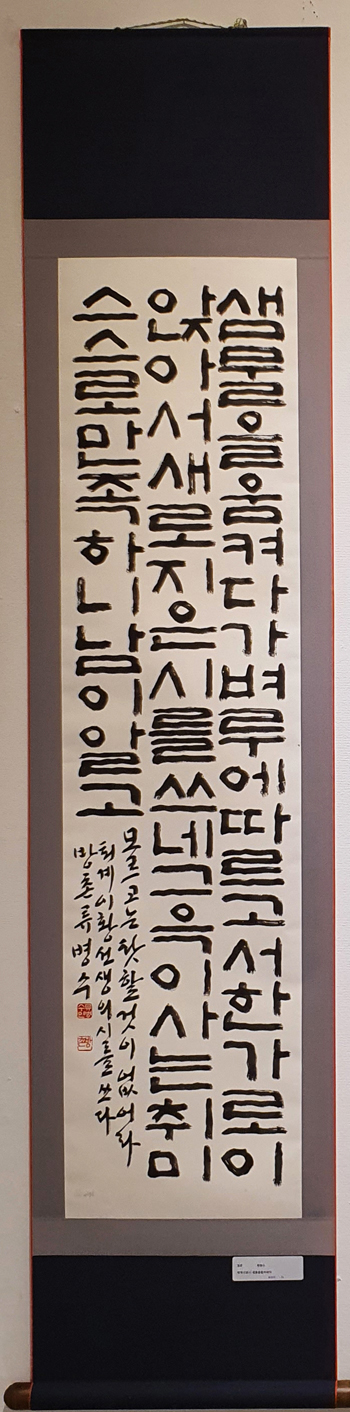 샘물을움켜다가벼루에따르고서한가로이
앉아서새로지은시를쓰네그윽이사는취미
스스로만족하니남이알고
모르고는탓할것이없어라
퇴계이황선생의시를쓰다
방촌류병수